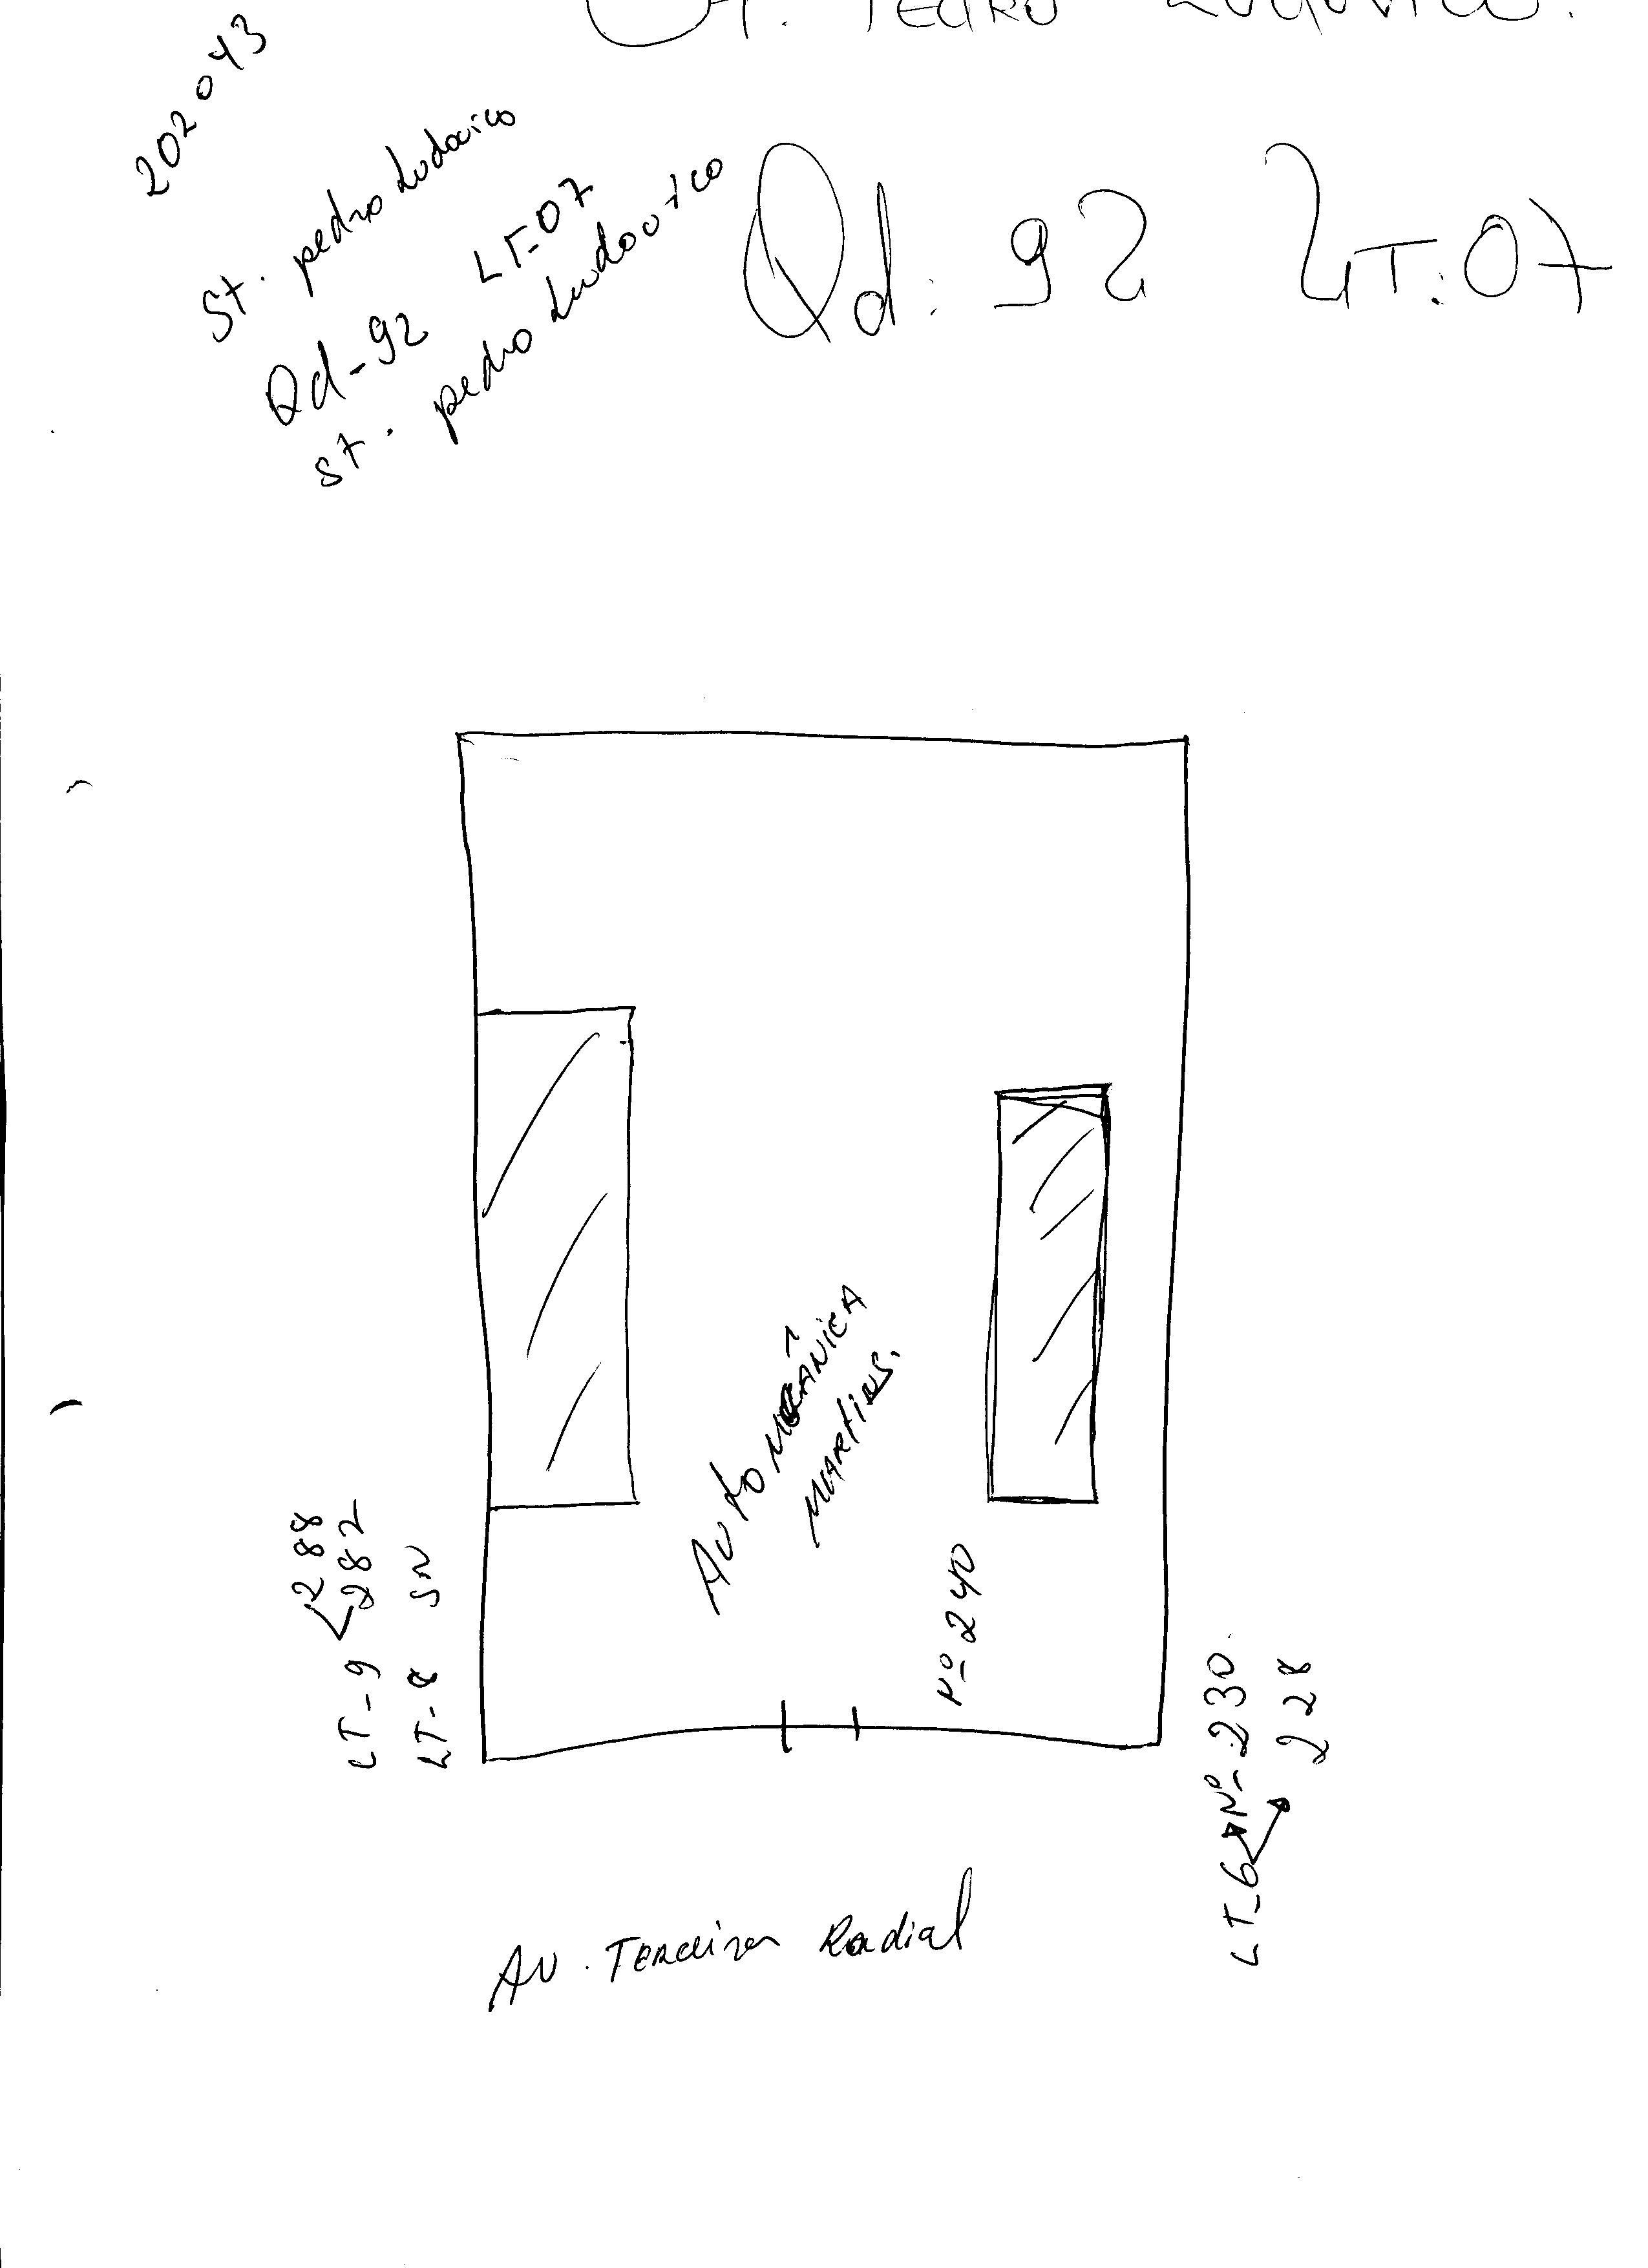 St. Pedro Ludovico.
202043
St. pedro Ludovico
Qd-92 LT-07
St. pedro Ludovico
Qd: 92 LT: 07
Auto MECÂNICA
MARTINS.
Nº 240
LT-9 288
282
LT-8 SN
LT-6 Nº-230
228
AV. Terceira Radial